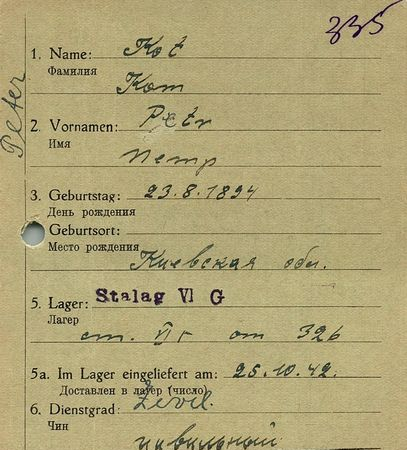 335
1. Name: Kot
Фамилия
Кот
Peter
2. Vornamen: Petr
Имя
Петр
3. Geburtstag: 23.8.1894
День рождения
Geburtsort:
Место рождения
Киевская обл.
5. Lager: Stalag VI G
Лагерь
ст. VI г от 326
5a. Im Lager eingeliefert am: 25.10.42.
Доставлен в лагерь (число)
6. Dienstgrad: Zevil.
Чин
цивильный